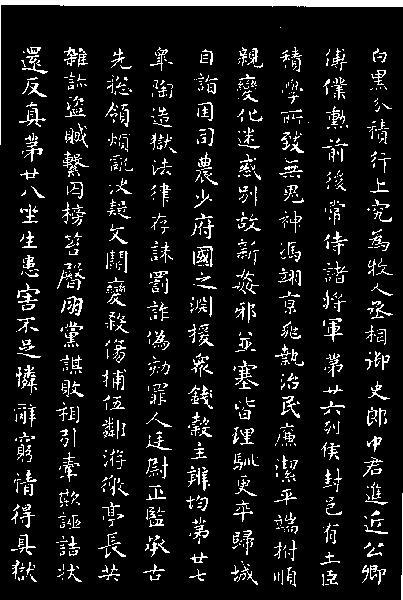 白黑分積行上究為牧人丞相御史郎中君進近公卿
傅僕勳前後常侍諸將軍第廿六列侯封邑有土臣
積學所致無鬼神馮翊京兆執治民廉潔平端拊順
親變化迷惑別故新姦邪並塞皆理馴更卒歸城
自詣因司農少府國之淵援眾錢穀主辨均第廿七
皋陶造獄法律存誅罰詐偽劾罪人廷尉正監承古
先總領煩亂決疑文鬭變殺傷捕伍鄰游徼亭長共
雜診盜賊繫囚榜笞臀朋黨謀敗相引牽欺誣詰狀
還反真第廿八坐生患害不足憐辭窮情得具獄